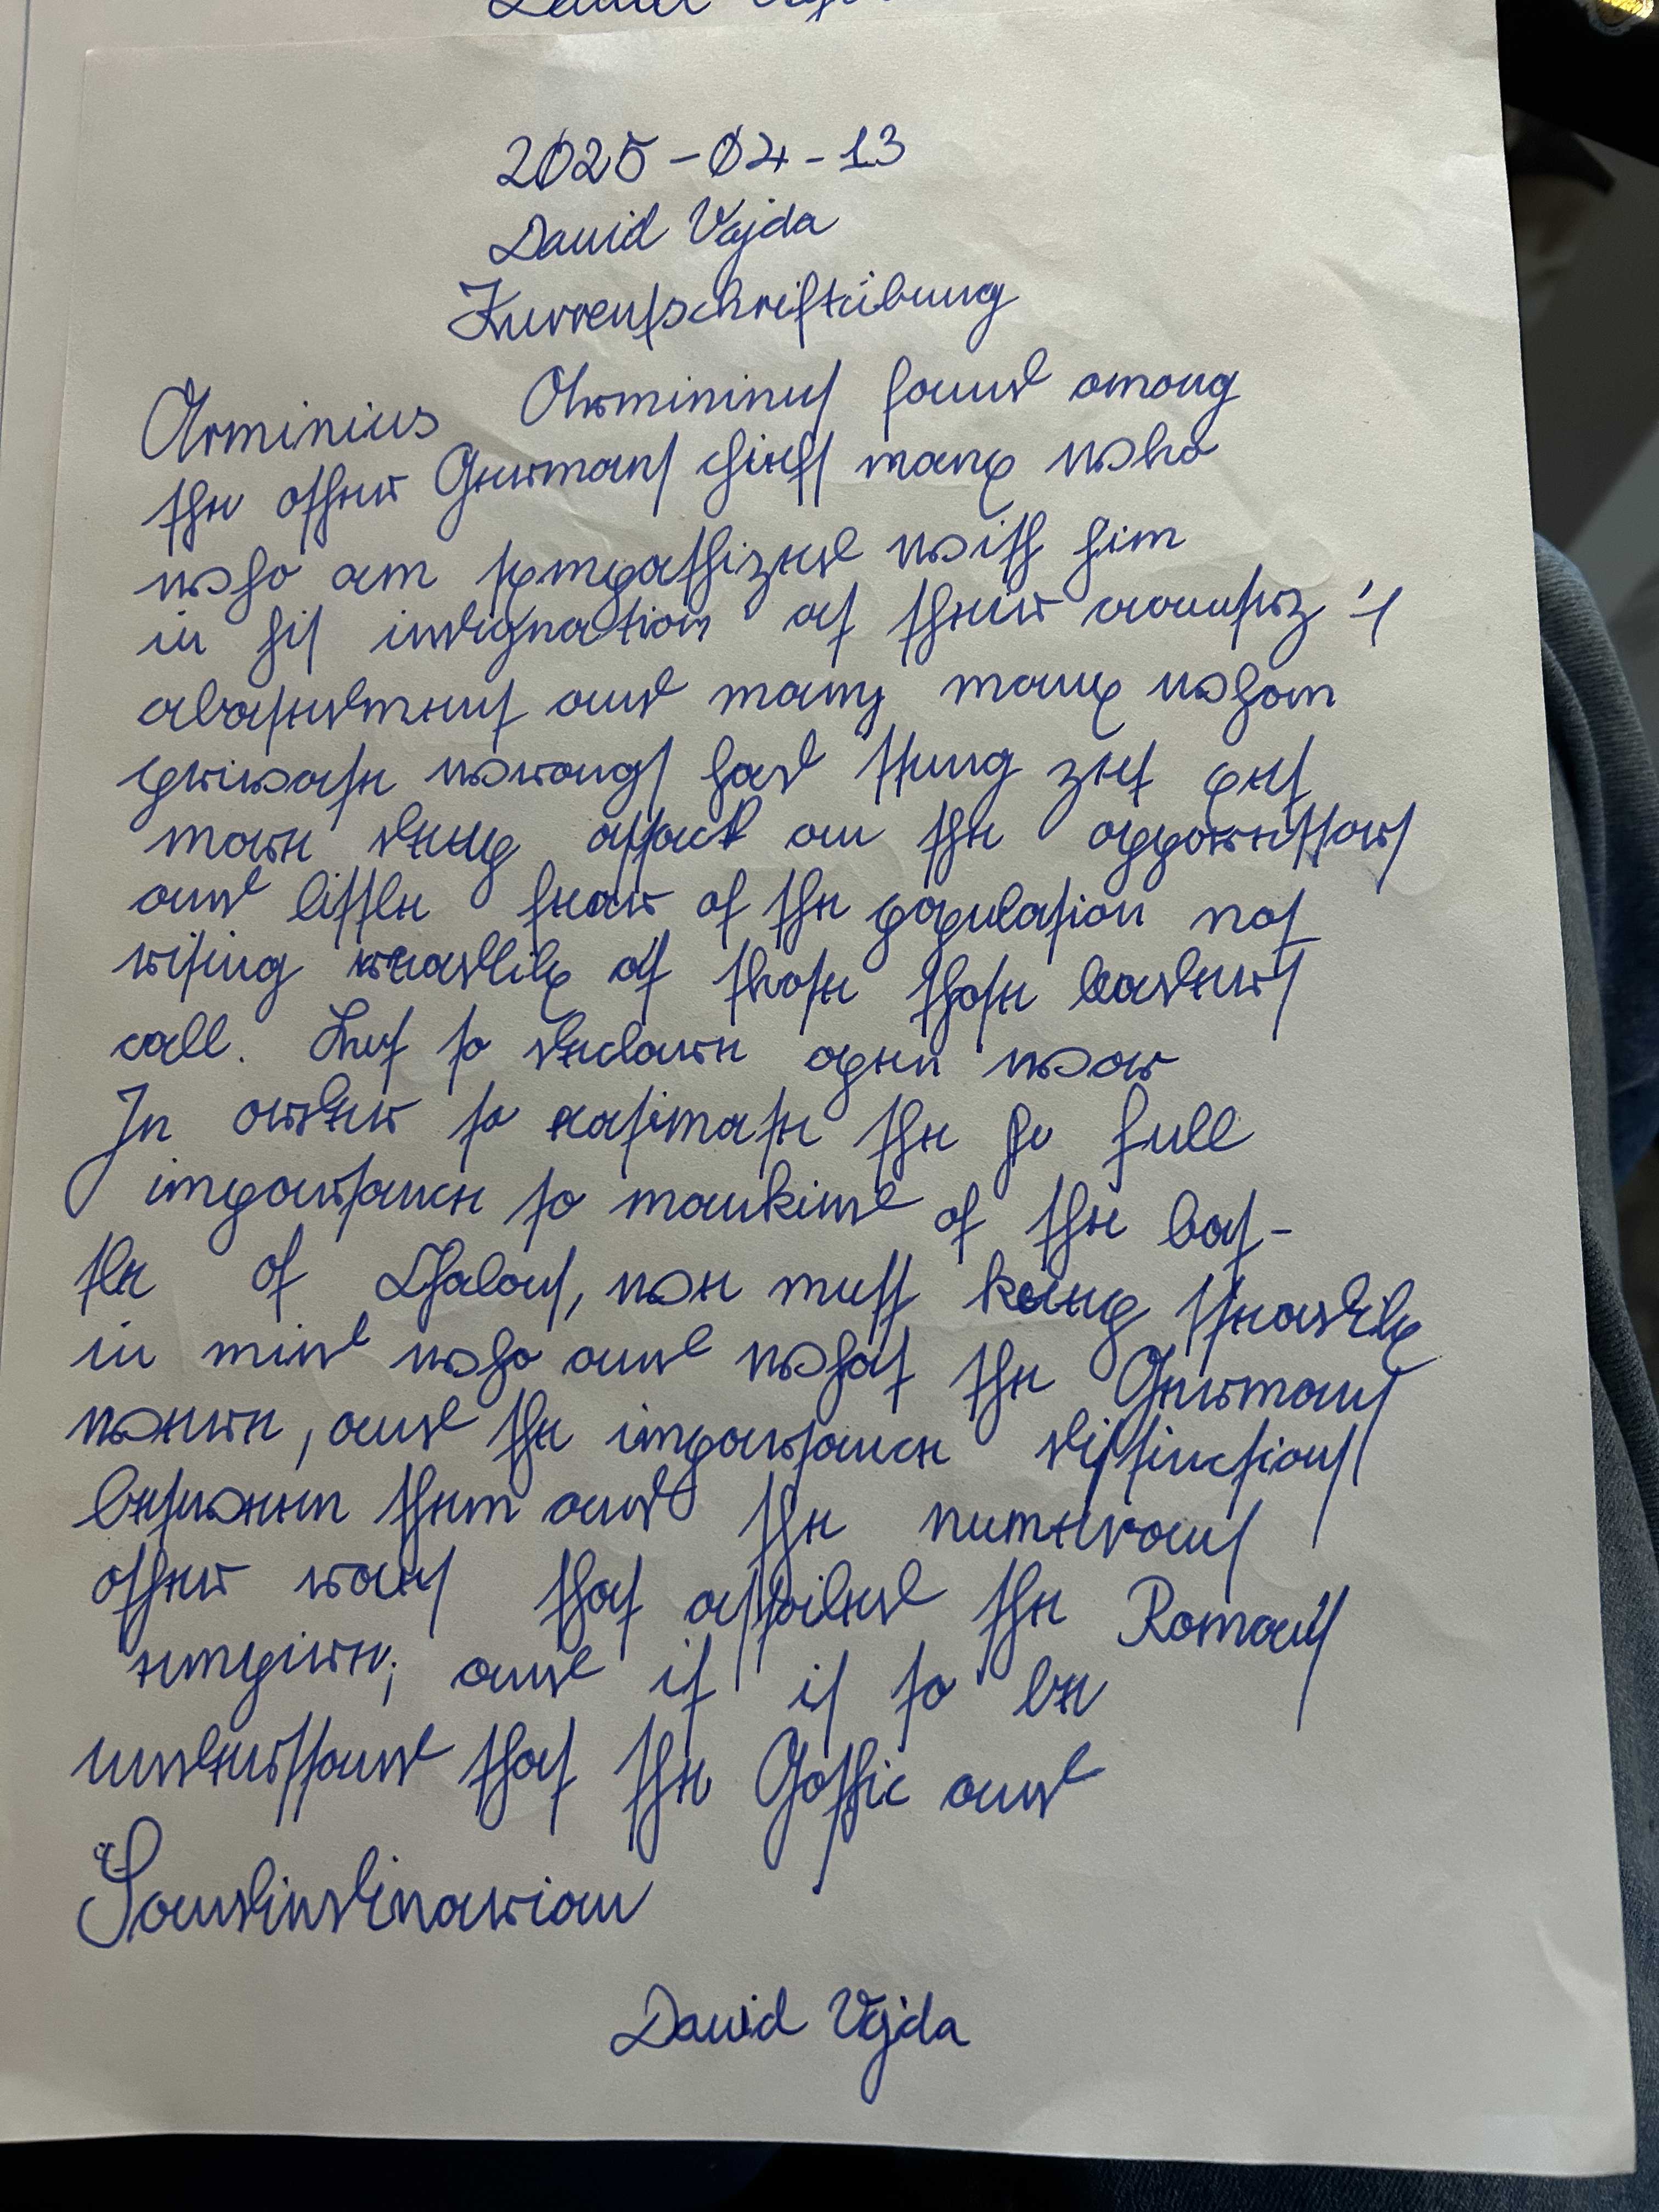 2025-04-13
David Vajda
Kurrentschriftübung
Arminius Arminius found among
the other Germans chiefs many who
who am sympathized with him
in his indignation at their country's
abasement and many many whom
private wrongs had stung yet yet
more deep attack on the oppressors
and little fear of the population not
rising readily at those those leaders
call. But to declare open war
In order to estimate the fu full
importance to mankind of the bat-
tle of Chalons, we must keep steadily
in mind who and what the Germans
were, and the importance distinctions
between them and the numerous
other races that assailed the Roman
empire; and it is to be
understand that the Gothic and
David Vajda